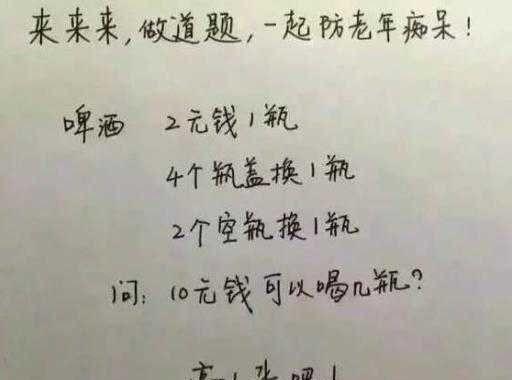 来来来,做道题,一起防老年痴呆!
啤酒 2元钱1瓶
4个瓶盖换1瓶
2个空瓶换1瓶
问: 10元钱可以喝几瓶?